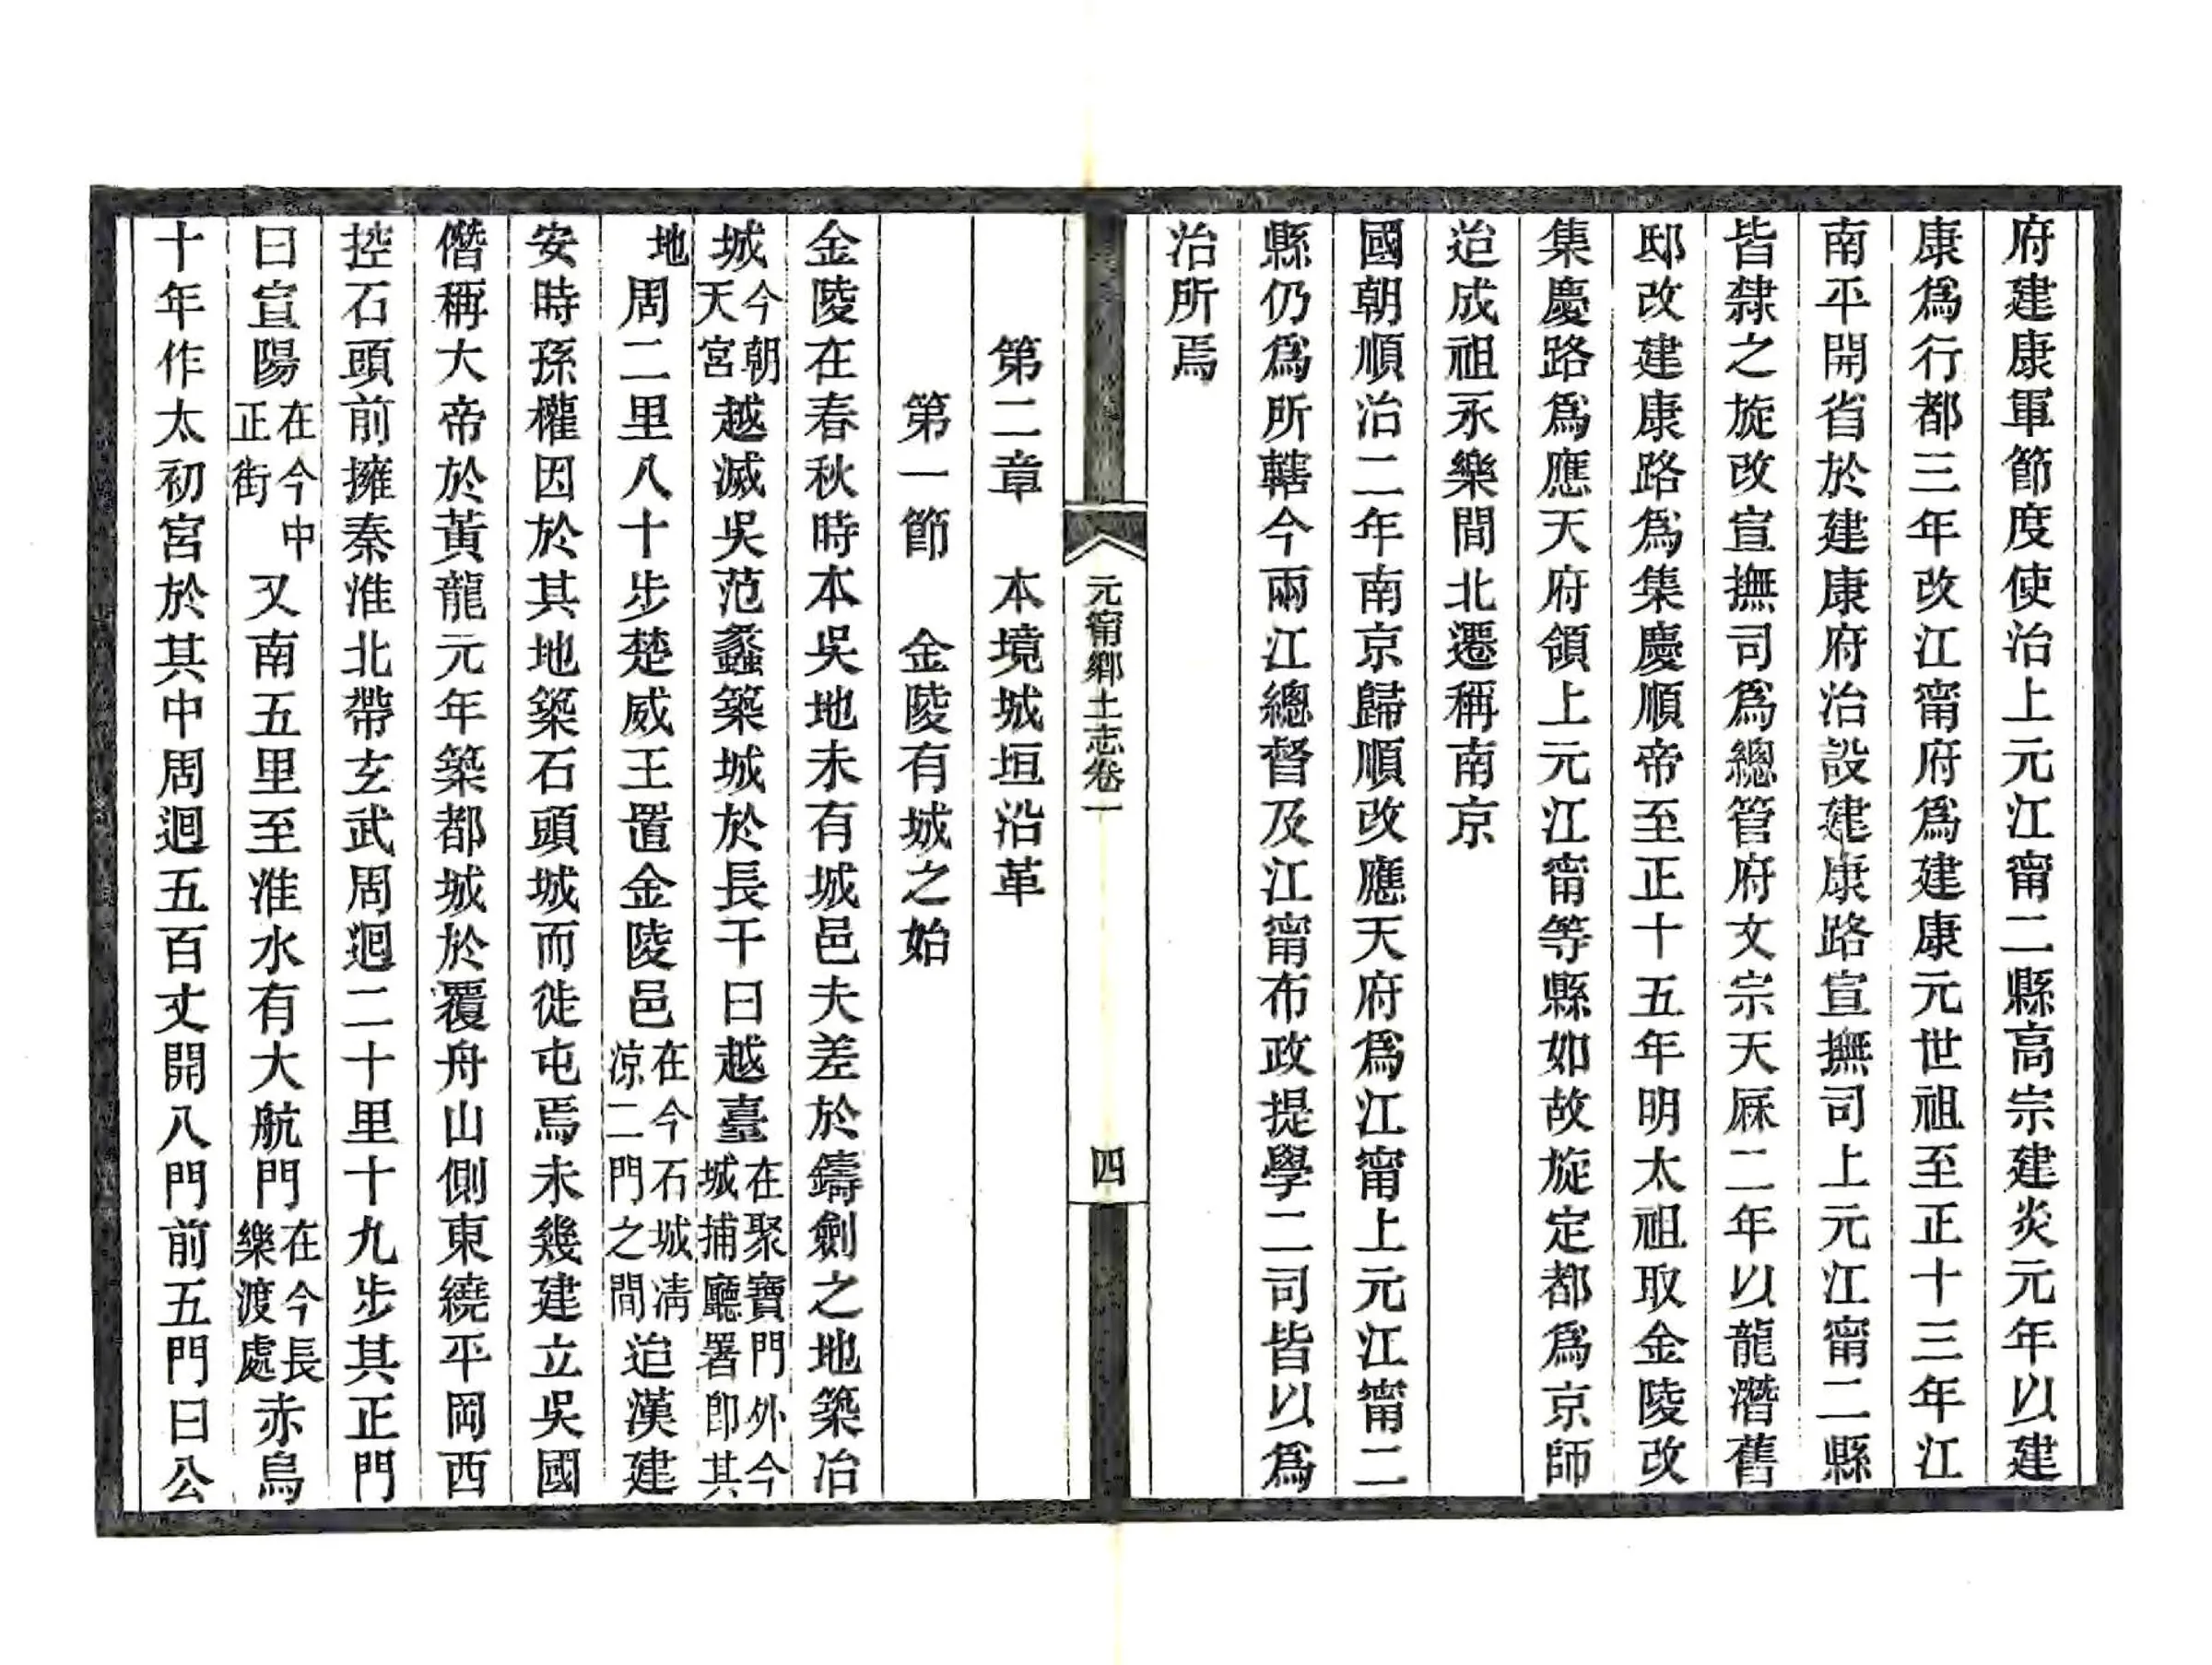 府建康軍節度使治上元江甯二縣高宗建炎元年以建
康爲行都三年改江甯府爲建康元世祖至正十三年江
南平開省於建康府治設建康路宣撫司上元江甯二縣
皆隸之旋改宣撫司爲總管府文宗天厤二年以龍潛舊
邸改建康路爲集慶順帝至正十五年明太祖取金陵改
集慶路爲應天府領上元江甯等縣如故旋定都爲京師
迨成祖永樂間北遷稱南京
國朝順治二年南京歸順改應天府爲江甯上元江甯二
縣仍爲所轄今兩江總督及江甯布政提學二司皆以爲
治所焉
元甯鄉土志卷一
四
第二章　本境城垣沿革
第一節　金陵有城之始
金陵在春秋時本吳地未有城邑夫差於鑄劍之地築冶
城今朝天宮越滅吳范蠡築城於長干曰越臺在聚寶門外今城捕廳署卽其
地周二里八十步楚威王置金陵邑在今石城淸凉二門之間迨漢建
安時孫權因於其地築石頭城而徙屯焉未幾建立吳國
僭稱大帝於黃龍元年築都城於覆舟山側東繞平岡西
控石頭前擁秦淮北帶玄武周迴二十里十九步其正門
曰宣陽在今中正街又南五里至淮水有大航門在今長樂渡處赤烏
十年作太初宮於其中周迴五百丈開八門前五門曰公